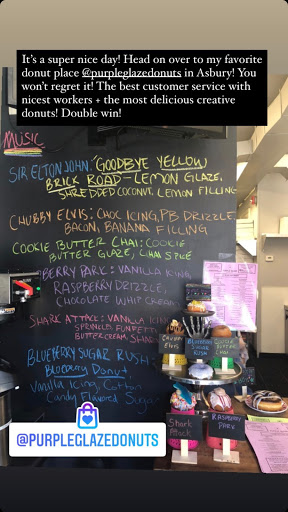 It's a super nice day! Head on over to my favorite
donut place @purpleglazedonuts in Asbury! You
won't regret it! The best customer service with
nicest workers + the most delicious creative
donuts! Double win!
MUSIC
SIR ELTON JOHN: "GOODBYE YELLOW
BRICK ROAD" - LEMON GLAZE,
SHREDDED COCONUT, LEMON FILLING
CHUBBY ELVIS: CHOC ICING, PB DRIZZLE,
BACON, BANANA FILLING
COOKIE BUTTER CHAI: COOKIE
BUTTER GLAZE, CHAI SPICE
BERRY PARK: VANILLA ICING,
RASPBERRY DRIZZLE,
CHOCOLATE WHIP CREAM
SHARK ATTACK: VANILLA ICING
SPRINKLES, FUNFETTI,
BUTTERCREAM, SHARK
BLUEBERRY SUGAR RUSH:
Blueberry Donut
Vanilla Icing, Cotton
Candy Flavored Sugar
CHUBBY
ELVIS
BLUEBERRY
SUGAR
RUSH
COOKIE
BUTTER
CHAI
Shark
Attack
RASPBERRY
PARK
@PURPLEGLAZEDONUTS